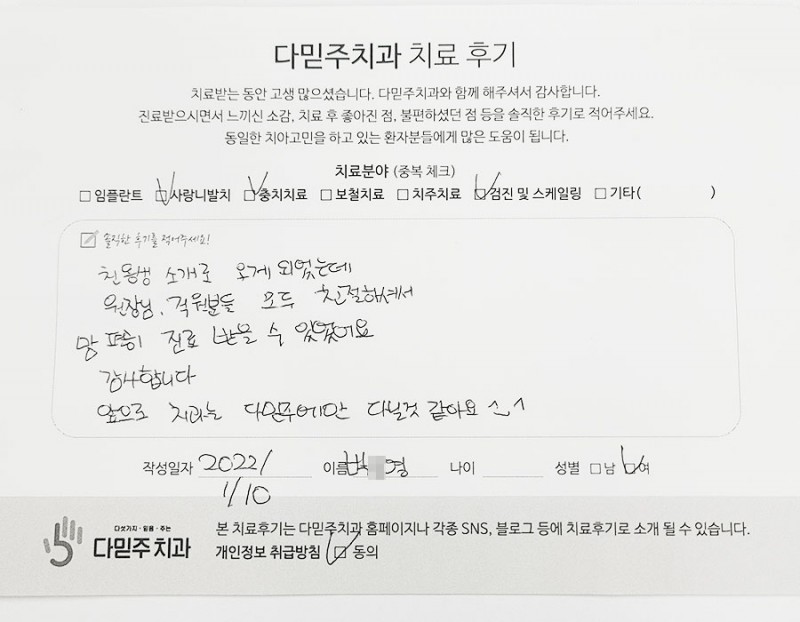 다믿주치과 치료 후기
치료받는 동안 고생 많으셨습니다. 다믿주치과와 함께 해주셔서 감사합니다.
진료받으시면서 느끼신 소감, 치료 후 좋아진 점, 불편하셨던 점 등을 솔직한 후기로 적어주세요.
동일한 치아고민을 하고 있는 환자분들에게 많은 도움이 됩니다.
치료분야 (중복 체크)
□ 임플란트 □ 사랑니발치 □ 충치치료 □ 보철치료 □ 치주치료 □ 검진 및 스케일링 □ 기타( )
솔직한 후기를 적어주세요!
친동생 소개로 오게 되었는데
원장님, 직원분들 모두 친절하셔서
맘 편히 진료 받을 수 있었어요
감사합니다
앞으로 치과는 다믿주에만 다닐것 같아요 ^^
작성일자 2022/ 이름 백 영 나이 성별 □남 □여
1/10
다섯가지 · 믿음 · 주는
다믿주치과
본 치료후기는 다믿주치과 홈페이지나 각종 SNS, 블로그 등에 치료후기로 소개 될 수 있습니다.
개인정보 취급방침 □ 동의